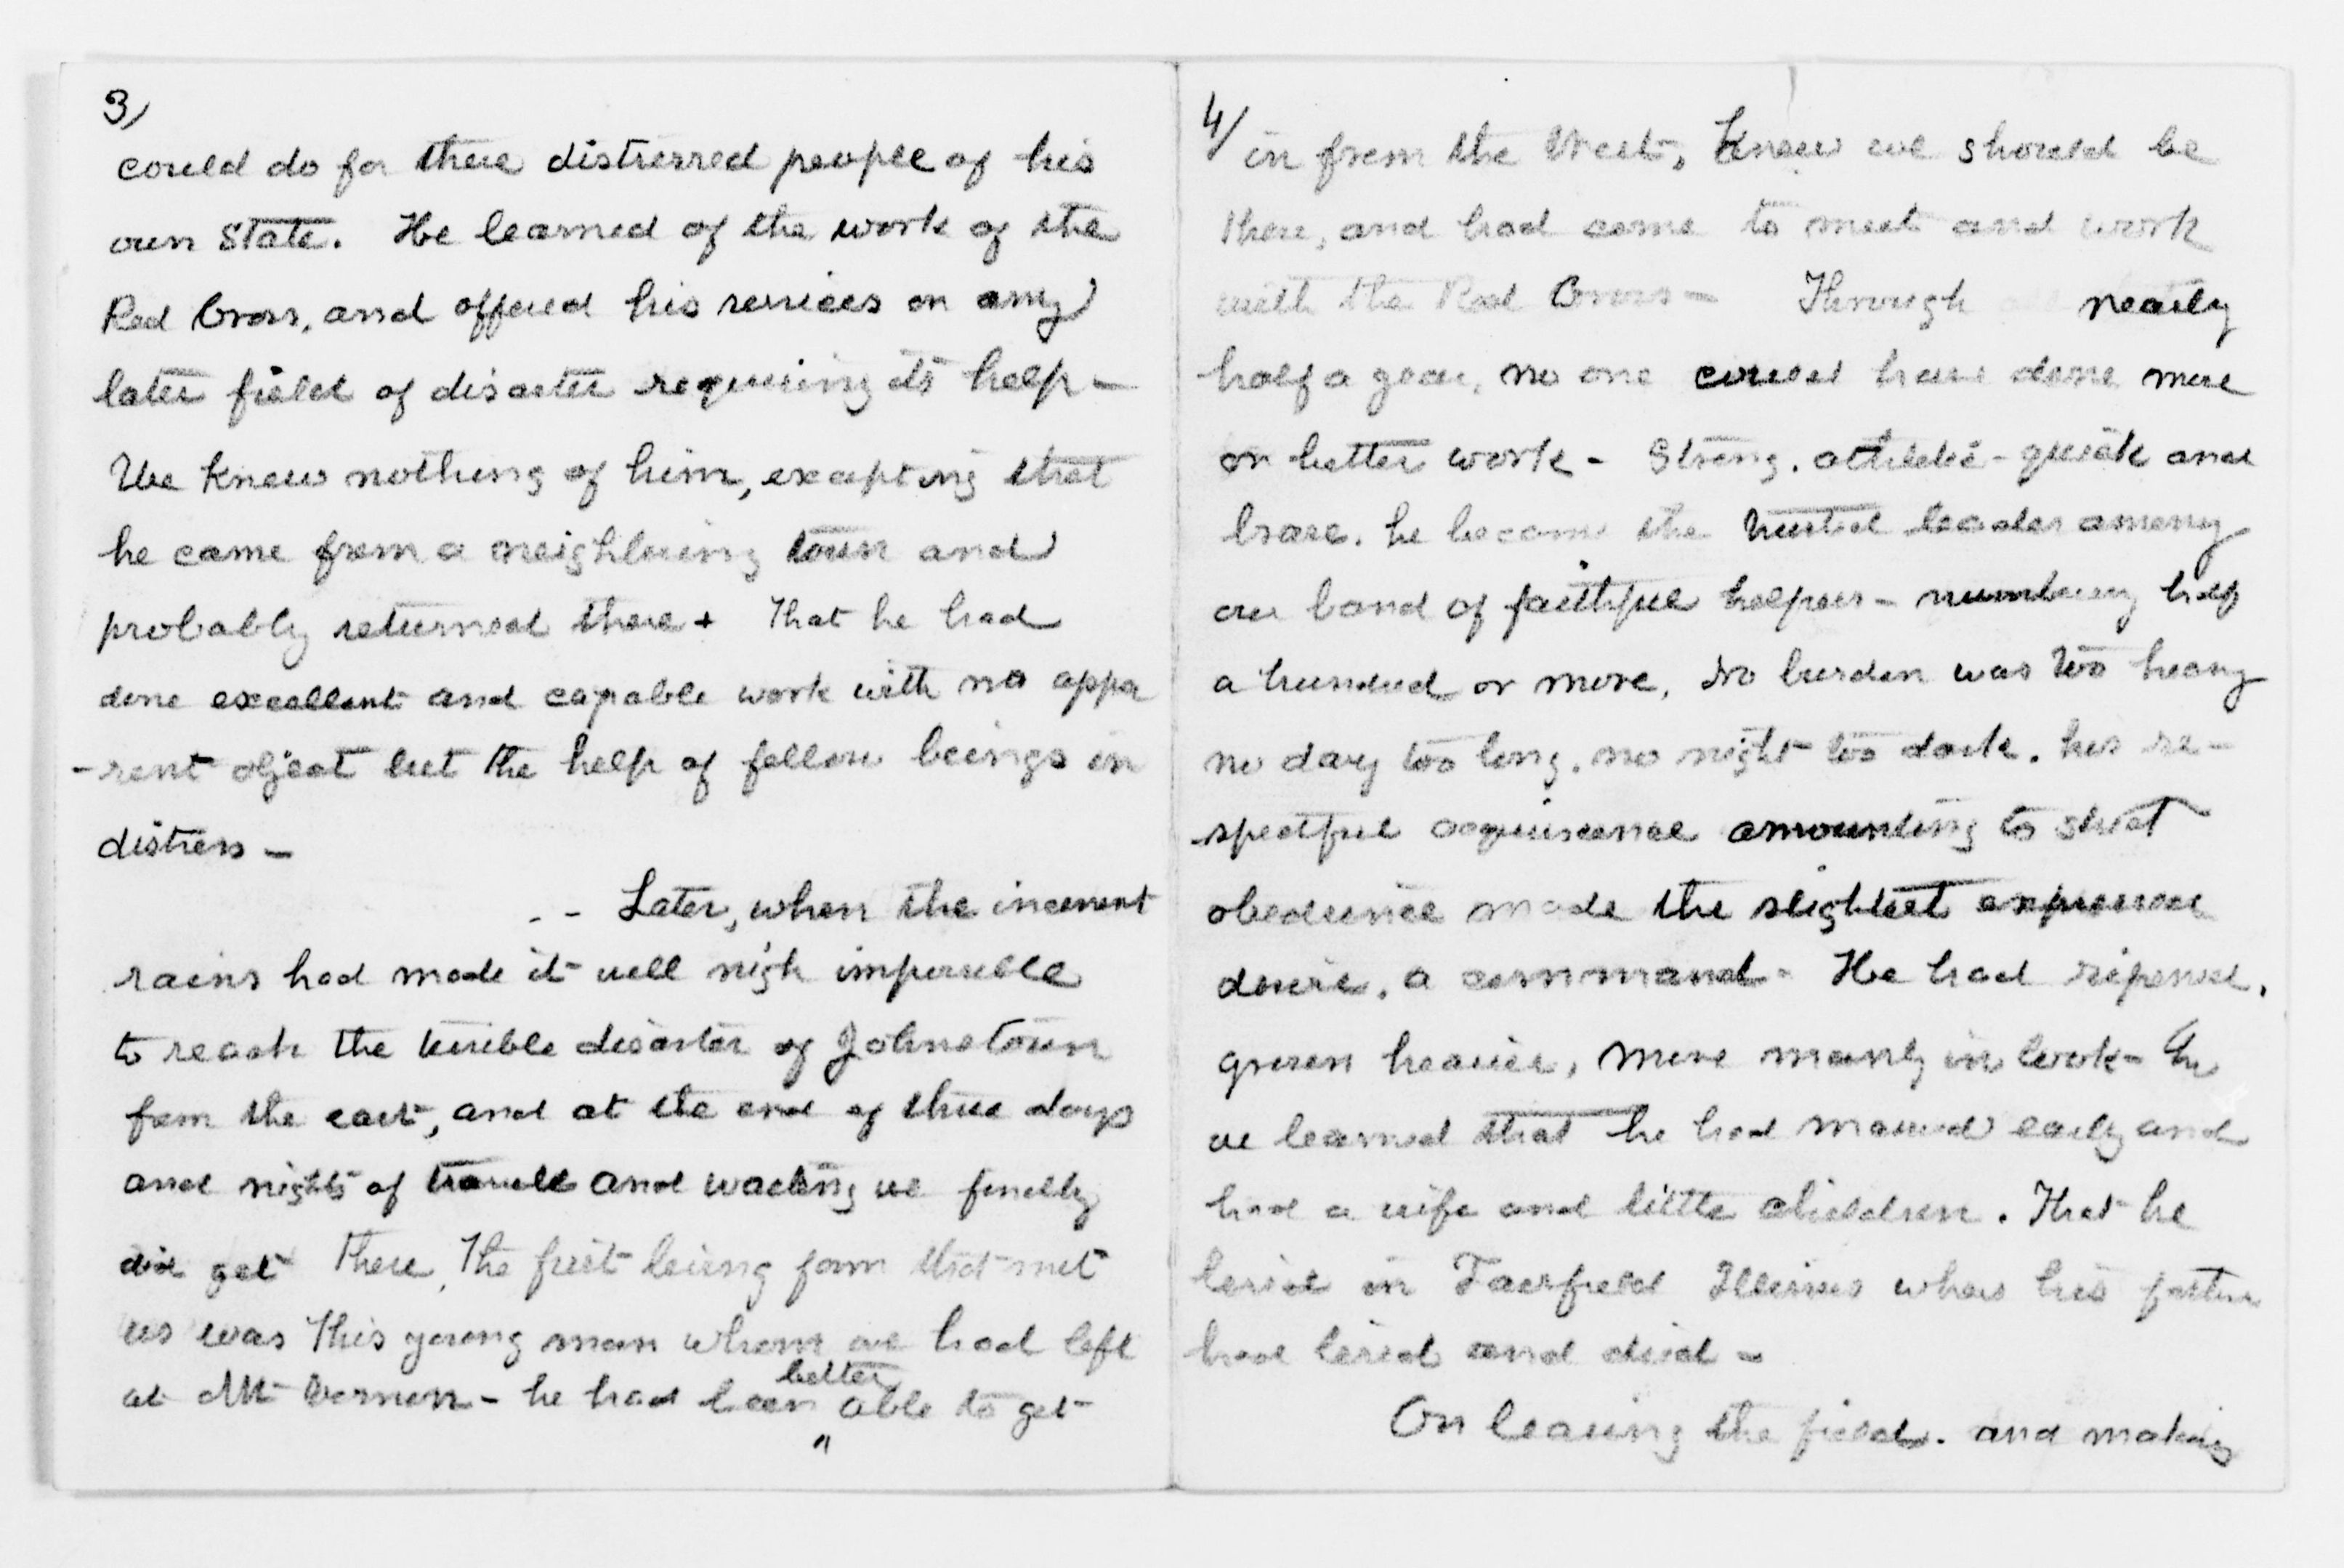 3/
could do for these distressed people of his
own State. He learned of the work of the
Red Cross, and offered his services on any
later field of disaster requiring its help -
We knew nothing of him, excepting that
he came from a neighboring town and
probably returned there + That he had
done excellent and capable work with no appa
- rent object but the help of fellow beings in
distress -
- - Later, when the incessant
rains had made it well nigh impossible
to reach the terrible disaster of Johnstown
from the east, and at the end of three days
and nights of travell and wading we finally
did get there, The first living form that met
us was this young man whom we had left
at Mt Vernon - he had been better able to get
4/
in from the West, knew we should be
there, and had come to meet and work
with the Red Cross - Through nearly
half a year, no one could have done more
or better work - Strong, athletic - quick and
brave, he became the trusted leader among
our band of faithful helpers - numbering half
a hundred or more, No burden was too heavy
no day too long, no night too dark. his re-
spectful acquiescence amounting to strict
obedience made the slightest expressed
desire, a command - He had ripened,
grown heavier, more manly in look -
we learned that he had married early and
had a wife and little children. That he
lived in Fairfield Illinois where his father
had lived and died -
On leaving the field. and making